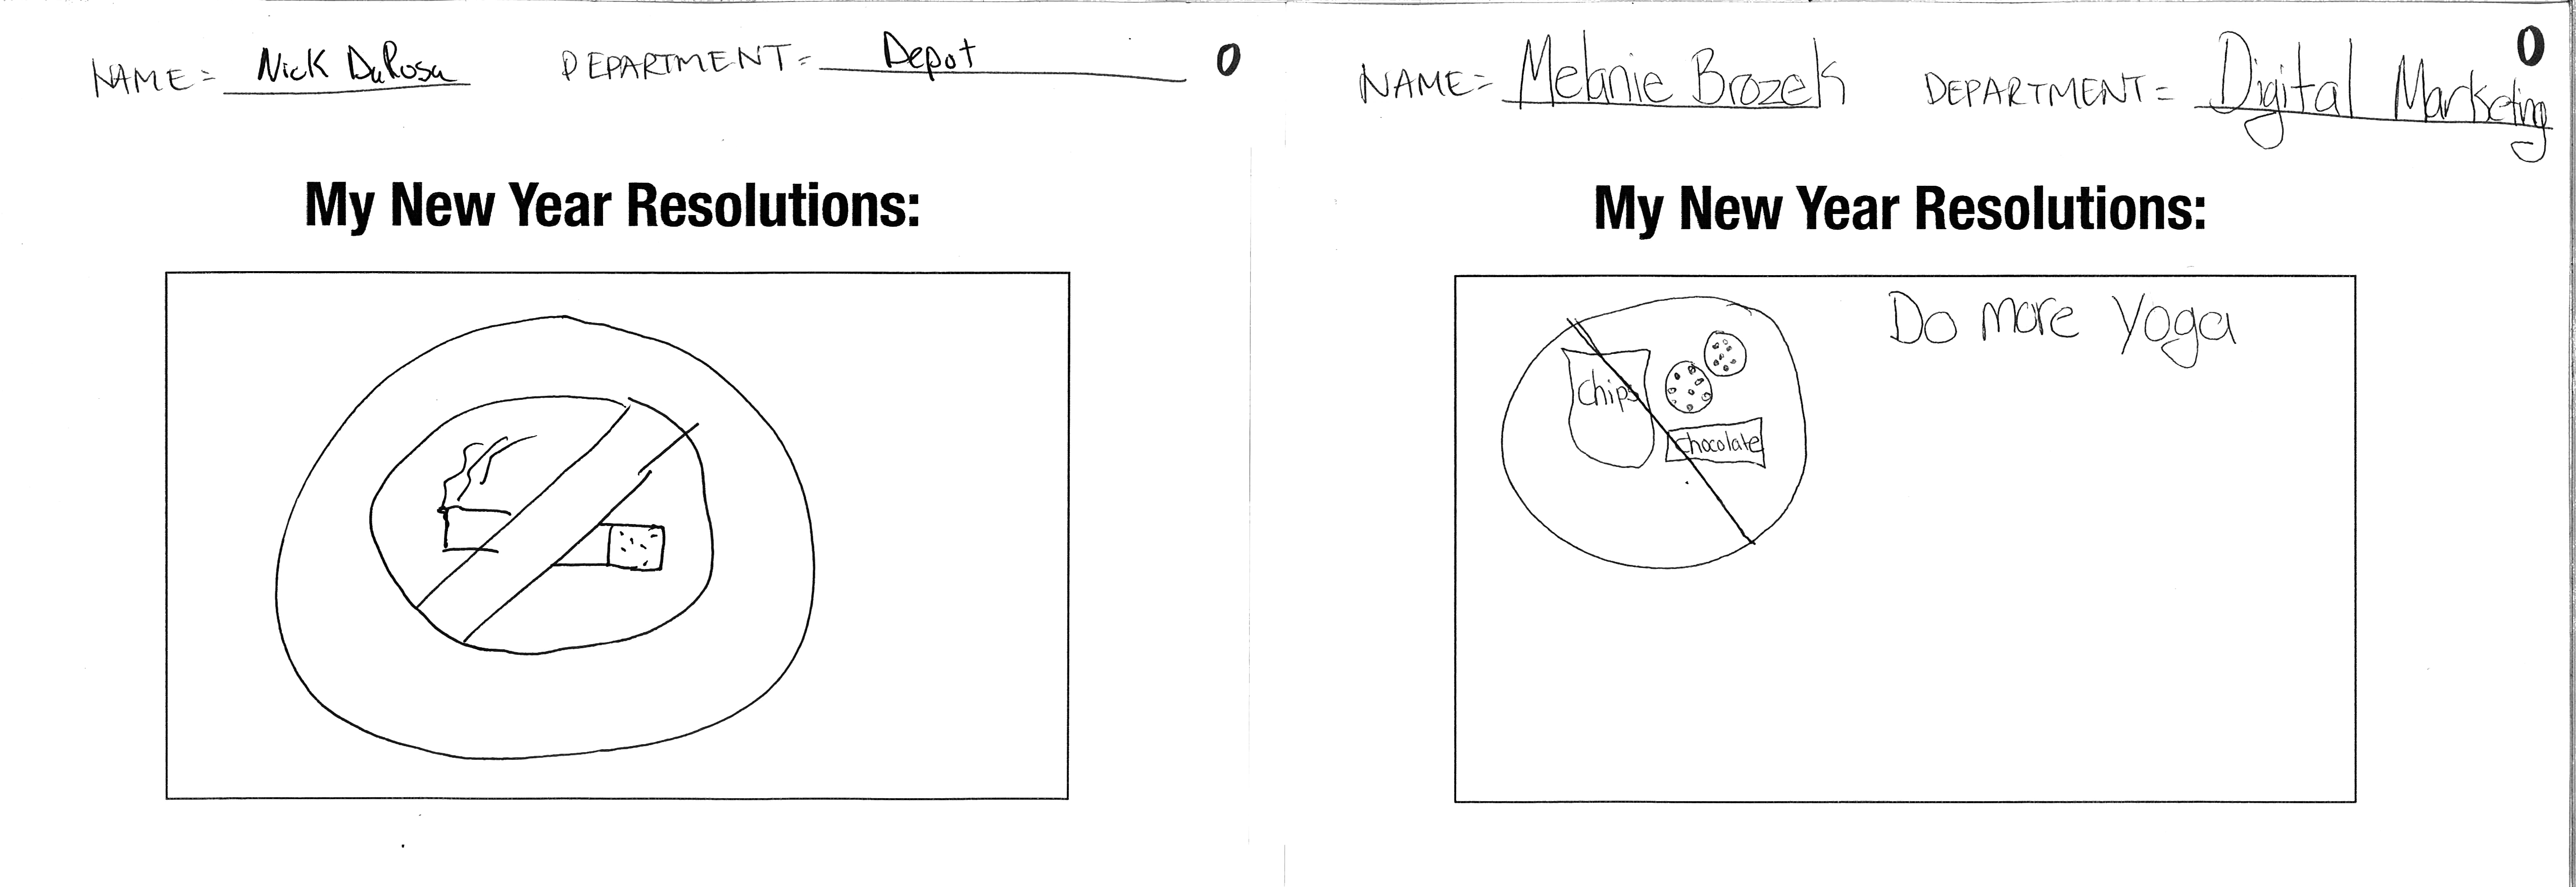 NAME= Nick DaRosa DEPARTMENT= Depot 0
My New Year Resolutions:
NAME= Melanie Brozek DEPARTMENT= Digital Marketing 0
My New Year Resolutions:
Do more Yoga
Chips
Chocolate